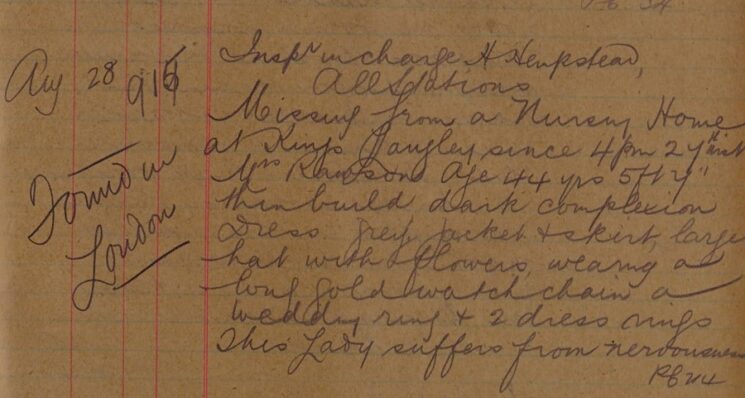 Aug 28 915
Found in
London
Inspr in charge H Hempstead,
All Stations
Missing from a Nursing Home
at Kings Langley since 4pm 27th inst
Mrs Rawson Age 44 yrs 5ft 7"
thin build dark complexion
Dress grey jacket & skirt, large
hat with flowers, wearing a
long gold watch chain a
wedding ring & 2 dress rings
This Lady suffers from nervousness